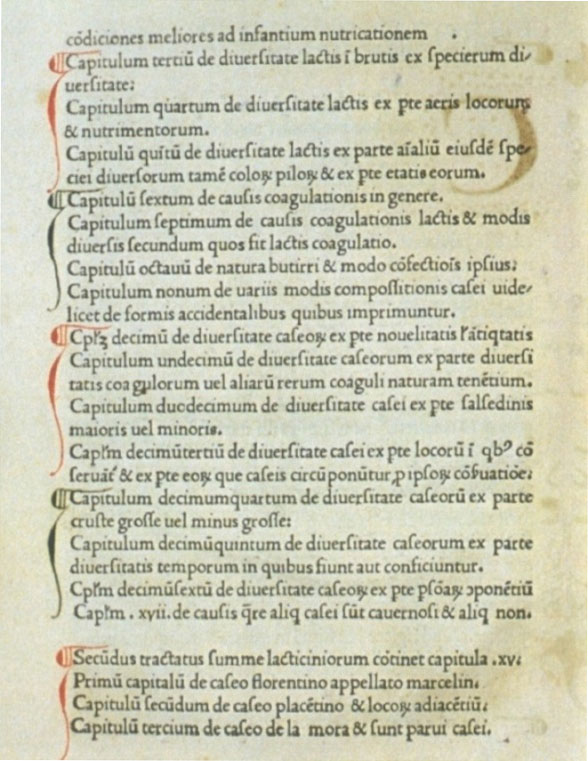 cõdiciones meliores ad infantium nutricationem .
Capitulum tertiũ de diuerſitate lactis ĩ brutis ex ſpecierum di/
uerſitate:
Capitulum quartum de diuerſitate lactis ex pte aeris locorum
& nutrimentorum.
Capitulũ quĩtũ de diuerſitate lactis ex parte aĩaliũ eiuſdẽ ſpe/
ciei diuerſorum tamẽ coloꝝ piloꝝ & ex pte etatis eorum.
Capitulũ ſextum de cauſis coagulationis in genere.
Capitulum ſeptimum de cauſis coagulationis lactis & modis
diuerſis ſecundum quos fit lactis coagulatio.
Capitulũ octauũ de natura butirri & modo cõfectiõis ipſius:
Capitulum nonum de uariis modis compoſſitionis caſei uide/
licet de formis accidentalibus quibus imprimuntur.
decimũ de diuerſitate caſeoꝝ ex pte nouelitatis
Capitulum undecimũ de diuerſitate caſeorum ex parte diuerſi
tatis coagulorum uel aliarũ rerum coaguli naturam tenẽtium.
Capitulum duodecimum de diuerſitate caſei ex pte ſalſedinis
maioris uel minoris.
Capłm decimũtertiũ de diuerſitate caſei ex pte locorũ ĩ qbꝰ cõ
& ex pte eoꝝ que caſeis circũponũtur, ipſoꝝ
Capitulum decimumquartum de diuerſitate caſeorũ ex parte
cruſte groſſe uel minus groſſe:
Capitulum decimũquintum de diuerſitate caſeorum ex parte
diuerſitatis temporum in quibus fiunt aut conficiuntur.
Cpłm decimũſextũ de diuerſitate caſeoꝝ ex pte ꝯponẽtiũ
Capłm . xyii. de cauſis q̃re aliq caſei ſũt cauernoſi & aliq non.
Secũdus tractatus ſumme lacticiniorum cõtinet capitula .xv.
Primũ capitalũ de caſeo florentino appellato marcelin.
Capitulũ ſecũdum de caſeo placẽtino & locoꝝ adiacẽtiũ.
Capitulũ tercium de caſeo de la mora & ſunt parui caſei.